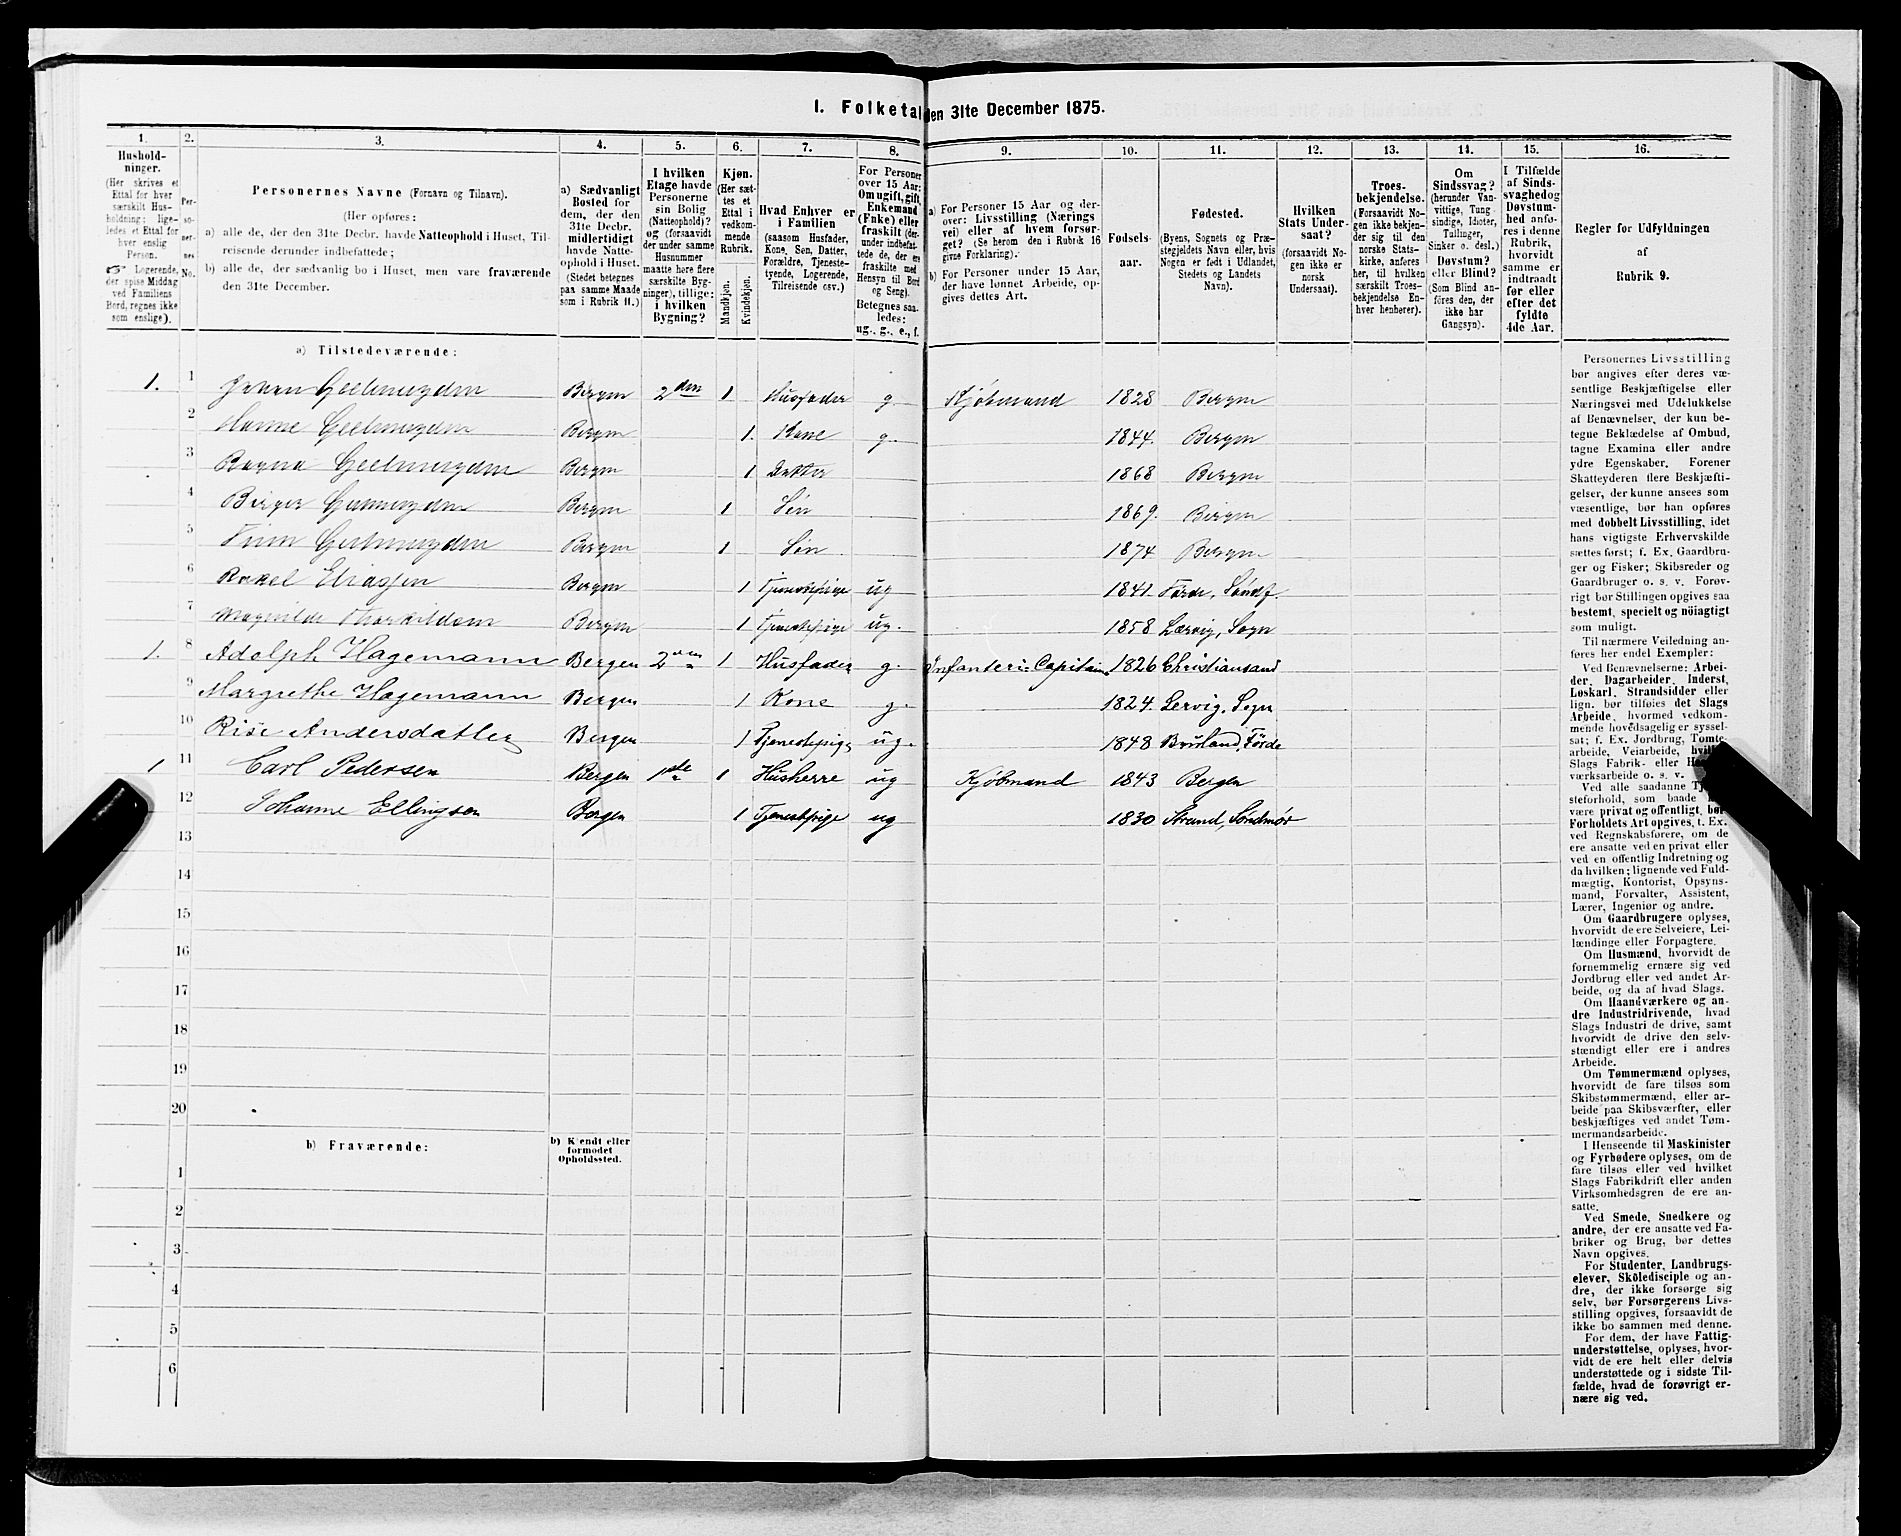 I. Folketal den 31te December 1875.
1.
Hushold-
ninger.
(Her skrives et
Ettal for hver
særskilt Hus-
holdning; lige-
ledes et Ettal for
hver enslig
Person.
☞ Logerende,
der spise Middag
ved Familiens
Bord, regnes ikke
som enslige).
2.
Per-
so-
ner-
nes
No.
3.
Personernes Navne (Fornavn og Tilnavn).
(Her opføres:
a) alle de, der den 31te Decbr. havde Natteophold i Huset, Til-
reisende derunder indbefattede;
b) alle de, der sædvanlig bo i Huset, men vare fraværende
den 31te December.
4.
a) Sædvanligt
Bosted for
dem, der den
31te Decbr.
midlertidigt
havde Natte-
ophold i Huset.
(Stedet betegnes
paa samme Maade
som i Rubrik 11.)
5.
I hvilken
Etage havde
Personerne
sin Bolig
(Natteophold)?
og (forsaavidt
der under samme
Husnummer
maatte høre flere
særskilte Byg-
ninger), tillige:
i hvilken
Bygning?
6.
Kjøn.
(Her sæt-
tes et
Ettal i
vedkom-
mende
Rubrik.
Mandkjøn.
Kvindekjøn.
7.
Hvad Enhver er
i Familien
(saasom Husfader,
Kone, Søn, Datter,
Forældre, Tjeneste-
tyende, Logerende,
Tilreisende osv.)
8.
For Personer
over 15 Aar:
Om ugift, gift,
Enkemand
(Enke) eller
fraskilt (der-
under indbefat-
tede de, der ere
fraskilte med
Hensyn til Bord
og Seng).
Betegnes saa-
ledes:
ug., g., e., f.
9.
a) For Personer 15 Aar og der-
over: Livsstilling (Nærings
vei) eller af hvem forsør-
get? (Se herom den i Rubrik 16
givne Forklaring).
b) For Personer under 15 Aar,
der have lønnet Arbeide, op-
gives dettes Art.
10.
Fødsels-
aar.
11.
Fødested.
(Byens, Sognets og Præ-
stegjeldets Navn eller, hvis
Nogen er født i Udlandet,
Stedets og Landets
Navn).
12.
Hvilken
Stats Under-
saat?
(forsaavidt No-
gen ikke er
norsk
Undersaat).
13.
Troes-
bekjendelse.
(Forsaavidt No-
gen ikke bekjen-
der sig til den
norske Stats-
kirke, anføres
her, til hvilken
særskilt Troes-
bekjendelse En-
hver henhører).
14.
Om
Sindssvag?
(herunder Van-
vittige, Tung-
sindige, Idioter,
Tullinger,
Sinker o. desl.)
Døvstum?
eller Blind?
(Som Blind an-
føres den, der
ikke har
Gangsyn).
15.
I Tilfælde
af Sinds-
svaghed og
Døvstum-
hed anfø-
res i denne
Rubrik,
hvorvidt
samme er
indtraadt
før eller
efter det
fyldte
4de Aar.
16.
Regler for Udfyldningen
af
Rubrik 9.
a) Tilstedeværende:
1. 1 Geelmuyden Bergen 2den 1 Husfader g. Kjøbmand 1828 Bergen
2 Hanne Geelmuyden Bergen 1. Kone g. 1844. Bergen
3 Ragna Geelmuyden Bergen 1 Datter 1868 Bergen
4 Birger Geelmuyden Bergen 1 Søn 1869. Bergen
5 Finn Geelmuyden Bergen 1 Søn 1874 Bergen
6 Rakel Eliassen Bergen 1 Tjenestepige ug 1841. Førde, Søndf.
7 Magnilde Thorkildsen Bergen 1 Tjenestepige ug. 1858 Lærvig, Sogn
1. 8 Adolph Hagemann Bergen 2den 1 Husfader g. Infanteri-Capitain 1826 Christiansand
9 Margrethe Hagemann Bergen 1 Kone g. 1824. Lervig, Sogn
10 Rise Andersdatter Bergen 1 Tjenestepige ug. 1848 Bruland, Førde
1 11 Carl Pedersen Bergen 1ste 1 Husherre ug Kjøbmand 1843 Bergen
12 Johanne Ellingsen Bergen 1 Tjenestepige ug 1830 Strand, Søndmør
13
14
15
16
17
18
19
20
b) Fraværende:
b) Kjendt eller
formodet
Opholdssted.
1
2
3
4
5
6
Personernes Livsstilling
bør angives efter deres væ-
sentlige Beskjæftigelse eller
Næringsvei med Udelukkelse
af Benævnelser, der kun be-
tegne Beklædelse af Ombud,
tagne Examina eller andre
ydre Egenskaber. Forener
Skatteyderen flere Beskjæfti-
gelser, der kunne ansees som
væsentlige, bør han opføres
med dobbelt Livsstilling, idet
hans vigtigste Erhvervskilde
sættes først; f. Ex. Gaardbru-
ger og Fisker; Skibsreder og
Gaardbruger o. s. v. Forøv-
rigt bør Stillingen opgives saa
bestemt, specielt og nöiagtigt
som muligt.
Til nærmere Veiledning an-
føres her endel Exempler:
Ved Benævnelserne: Arbei-
der, Dagarbeider, Inderst,
Løskarl, Strandsidder eller
lign. bør tilføies det Slags
Arbeide, hvormed vedkom-
mende hovedsagelig er syssel-
sat; f. Ex. Jordbrug, Tomte-
arbeide, Veiarbeide,
Slags Fabrik- eller
værksarbeide o. s. v.
Ved alle saadanne
steforhold, som baade
være privat og offentligt, bør
Forholdets Art opgives, t. Ex.
ved Regnskabsførere, om de
ere ansatte ved en privat eller
ved en offentlig Indretning og
da hvilken; lignende ved Fuld-
mægtig, Kontorist, Opsyns-
mand, Forvalter, Assistent,
Lærer, Ingeniør og andre.
Om Gaardbrugere oplyses,
hvorvidt de ere Selveiere, Lei-
lændinge eller Forpagtere.
Om Husmænd, hvorvidt de
fornemmelig ernære sig ved
Jordbrug eller ved andet Ar-
beide, og da af hvad Slags.
Om Haandværkere og an-
dre Industridrivende, hvad
Slags Industri de drive, samt
hvorvidt de drive den selv-
stændigt eller ere i andres
Arbeide.
Om Tømmermænd oplyses,
hvorvidt de fare tilsøs som
Skibstømmermænd, eller ar-
beide paa Skibsværfter, eller
beskjæftiges ved andet Tøm-
mermandsarbeide.
I Henseende til Maskinister
og Fyrbødere oplyses, om de
fare tilsøs eller ved hvilket
Slags Fabrikdrift eller anden
Virksomhedsgren de ere an-
satte.
Ved Smede, Snedkere og
andre, der ere ansatte ved Fa-
briker og Brug, bør dettes
Navn opgives.
For Studenter, Landbrugs-
elever, Skoledisciple og an-
dre, der ikke forsørge sig
selv, bør Forsørgerens Livs-
stilling opgives, forsaavidt de
ikke bo sammen med denne.
For dem, der have Fattig-
understøttelse, oplyses, hvor-
vidt de ere helt eller delvis
understøttede og i sidste Til-
fælde, hvad de forøvrigt er-
nære sig ved.